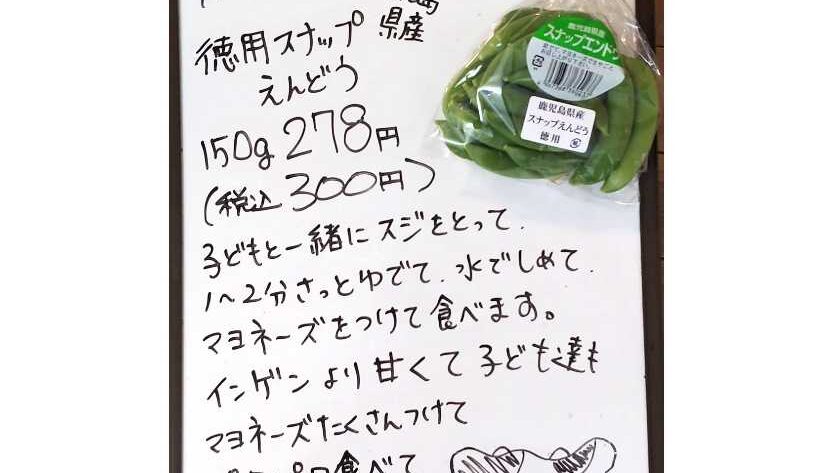 県産
徳用スナップ
えんどう
150g 278円
(税込 300円)
子どもと一緒にスジをとって、
1〜2分さっとゆでて、水でしめて、
マヨネーズをつけて食べます。
インゲンより甘くて子ども達も
マヨネーズたくさんつけて
食べて
鹿児島県産
スナップエンドウ
鹿児島県産
スナップえんどう
徳用